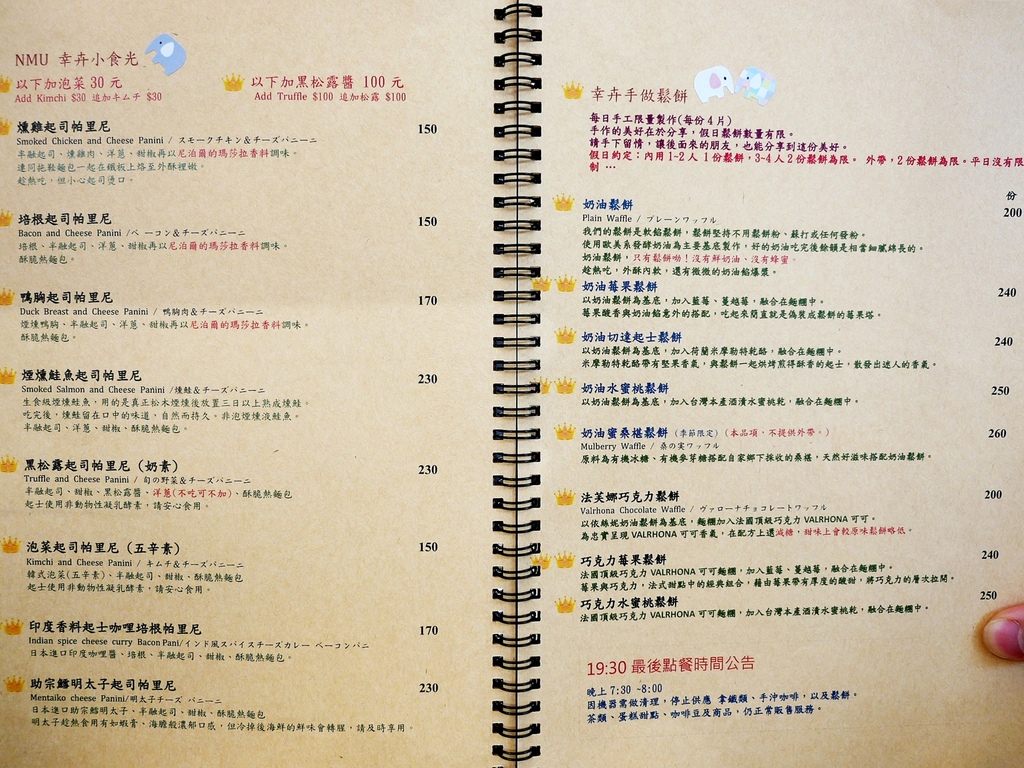 NMU 幸卉小食光
以下加泡菜 30 元
Add Kimchi $30 追加キムチ $30
以下加黑松露醬 100 元
Add Truffle $100 追加松露 $100
燻雞起司帕里尼 150
Smoked Chicken and Cheese Panini / スモークチキン＆チーズパニーニ
半融起司、燻雞肉、洋蔥、甜椒再以尼泊爾的瑪莎拉香料調味。
連同拖鞋麵包一起在鐵板上烙至外酥裡嫩。
趁熱吃，但小心起司燙口。
培根起司帕里尼 150
Bacon and Cheese Panini /ベ ーコン＆チーズパニーニ
培根、半融起司、洋蔥、甜椒再以尼泊爾的瑪莎拉香料調味。
酥脆熱麵包。
鴨胸起司帕里尼 170
Duck Breast and Cheese Panini / 鴨胸肉＆チーズパニーニ
煙燻鴨胸、半融起司、洋蔥、甜椒再以尼泊爾的瑪莎拉香料調味。
酥脆熱麵包。
煙燻鮭魚起司帕里尼 230
Smoked Salmon and Cheese Panini /燻鮭＆チーズパニーニ
生食級煙燻鮭魚，用的是真正松木煙燻後放置三日以上熟成燻鮭。
吃完後，燻鮭留在口中的味道，自然而持久。非泡煙燻液鮭魚。
半融起司、洋蔥、甜椒、酥脆熱麵包。
黑松露起司帕里尼（奶素） 230
Truffle and Cheese Panini / 旬の野菜＆チーズパニーニ
半融起司、甜椒、黑松露醬、洋蔥(不吃可不加)、酥脆熱麵包
起士使用非動物性凝乳酵素，請安心食用。
泡菜起司帕里尼（五辛素） 150
Kimchi and Cheese Panini / キムチ＆チーズパニーニ
韓式泡菜(五辛素)、半融起司、甜椒、酥脆熱麵包
起士使用非動物性凝乳酵素，請安心食用。
印度香料起士咖哩培根帕里尼 170
Indian spice cheese curry Bacon Pani/インド風スパイスチーズカレー ベーコンパニ
日本進口印度咖哩醬、培根、半融起司、甜椒、酥脆熱麵包。
助宗鱈明太子起司帕里尼 230
Mentaiko cheese Panini/明太子チーズ パニーニ
日本進口助宗鱈明太子、半融起司、甜椒、酥脆熱麵包
明太子趁熱食用有如蝦膏、海膽般濃郁口感，但冷掉後海鮮的鮮味會轉腥，請及時享用。
幸卉手做鬆餅
每日手工限量製作(每份 4 片)
手作的美好在於分享，假日鬆餅數量有限。
請手下留情，讓後面來的朋友，也能分享到這份美好。
假日約定：內用 1~2 人 1 份鬆餅，3~4 人 2 份鬆餅為限。 外帶，2 份鬆餅為限。平日沒有限
制 …
份
奶油鬆餅 200
Plain Waffle / プレーンワッフル
我們的鬆餅是軟餡鬆餅，鬆餅堅持不用鬆餅粉、蘇打或任何發粉。
使用歐美系發酵奶油為主要基底製作，好的奶油吃完後餘韻是相當細膩綿長的。
奶油鬆餅，只有鬆餅呦！沒有鮮奶油、沒有蜂蜜。
趁熱吃，外酥內軟，還有微微的奶油餡爆漿。
奶油莓果鬆餅 240
以奶油鬆餅為基底，加入藍莓、蔓越莓，融合在麵糰中。
莓果酸香與奶油餡意外的搭配，吃起來簡直就是偽裝成鬆餅的莓果塔。
奶油切達起士鬆餅 240
以奶油鬆餅為基底，加入荷蘭米摩勒特乾酪，融合在麵糰中。
米摩勒特乾酪帶有堅果香氣，與鬆餅一起烘烤煎得酥香的起士，散發出迷人的香氣。
奶油水蜜桃鬆餅 250
以奶油鬆餅為基底，加入台灣本產酒漬水蜜桃乾，融合在麵糰中。
奶油蜜桑椹鬆餅（季節限定）（本品項，不提供外帶。） 260
Mulberry Waffle / 桑の実ワッフル
原料為有機冰糖、有機麥芽糖搭配自家鄉下採收的桑椹，天然好滋味搭配奶油鬆餅。
法芙娜巧克力鬆餅 200
Valrhona Chocolate Waffle / ヴァローナチョコレートワッフル
以依絲妮奶油鬆餅為基底，麵糰加入法國頂級巧克力 VALRHONA 可可。
為忠實呈現 VALRHONA 可可香氣，在配方上還減糖，甜味上會較原味鬆餅略低。
巧克力莓果鬆餅 240
法國頂級巧克力 VALRHONA 可可麵糰，加入藍莓、蔓越莓，融合在麵糰中。
莓果與巧克力，法式甜點中的經典組合，藉由莓果帶有厚度的酸甜，將巧克力的層次拉開。
巧克力水蜜桃鬆餅 250
法國頂級巧克力 VALRHONA 可可麵糰，加入台灣本產酒漬水蜜桃乾，融合在麵糰中。
19:30 最後點餐時間公告
晚上 7:30 ~8:00
因機器需做清理，停止供應 拿鐵類、手沖咖啡，以及鬆餅。
茶類、蛋糕甜點、咖啡豆及商品，仍正常販售服務。